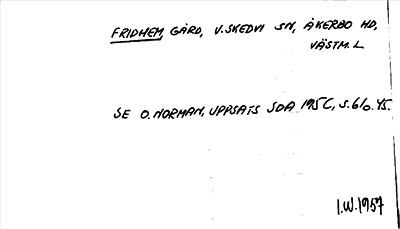 FRIDHEM, GÅRD, V. SKEDVI SN, ÅKERBO HD,
VÄSTM. L
SE O. NORMAN, UPPSATS SOA 195C, S. 6/0. 45.
I.W. 1957